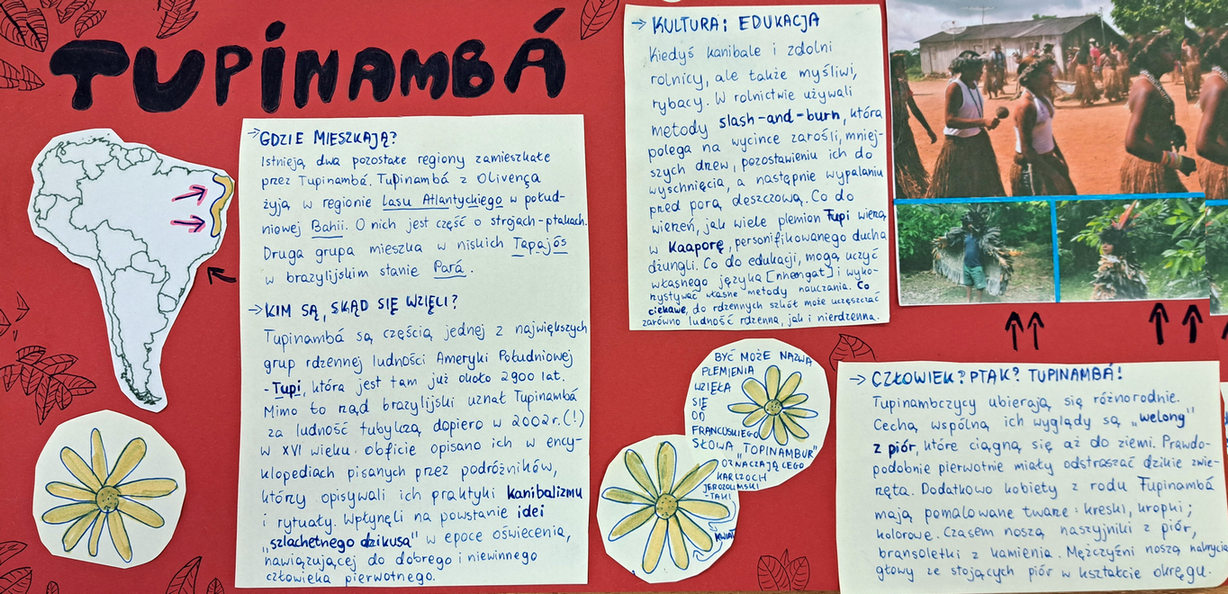 TUPINAMBÁ
→ GDZIE MIESZKAJĄ?
Istnieją dwa pozostałe regiony zamieszkałe
przez Tupinambá. Tupinambá z Olivença
żyją w regionie Lasu Atlantyckiego w połud-
niowej Bahii. O nich jest część o strojach-ptakach.
Druga grupa mieszka w niskich Tapajós
w brazylijskim stanie Pará.
→ KIM SĄ, SKĄD SIĘ WZIĘLI?
Tupinambá są częścią jednej z największych
grup rdzennej ludności Ameryki Południowej
- Tupi, która jest tam już około 2900 lat.
Mimo to rząd brazylijski uznał Tupinambá
za ludność tubylczą dopiero w 2002r.(!)
w XVI wieku obficie opisano ich w ency-
klopediach pisanych przez podróżników,
którzy opisywali ich praktyki kanibalizmu
i rytuały. Wpłynęli na powstanie idei
"szlachetnego dzikusa" w epoce oświecenia,
nawiązującej do dobrego i niewinnego
człowieka pierwotnego.
→ KULTURA i EDUKACJA
Kiedyś kanibale i zdolni
rolnicy, ale także myśliwi,
rybacy. W rolnictwie używali
metody slash-and-burn, która
polega na wycince zarośli, mniej-
szych drzew, pozostawieniu ich do
wyschnięcia, a następnie wypalaniu
przed porą deszczową. Co do
wierzeń, jak wiele plemion Tupi wierzą
w Kaaporę, personifikowanego ducha
dżungli. Co do edukacji, mogą uczyć
własnego języka [nhengat] i wyko-
rzystywać własne metody nauczania. Co
ciekawe, do rdzennych szkół może uczęszczać
zarówno ludność rdzenna, jak i nierdzenna.
BYĆ MOŻE NAZWA
PLEMIENIA
WZIĘŁA
SIĘ
OD
FRANCUSKIEGO
SŁOWA "TOPINAMBUR"
OZNACZAJĄCEGO
KARCZOCH
JEROZOLIMSKI
-TAKI
KWIAT
→ CZŁOWIEK? PTAK? TUPINAMBÁ!
Tupinambczycy ubierają się różnorodnie.
Cechą wspólną ich wyglądy są "welony"
z piór, które ciągną się aż do ziemi. Prawdo-
podobnie pierwotnie miały odstraszać dzikie zwie-
rzęta. Dodatkowo kobiety z rodu Tupinambá
mają pomalowane twarze: kreski, kropki;
kolorowe. Czasem noszą naszyjniki z piór,
bransoletki z kamienia. Mężczyźni noszą nakrycia
głowy ze stojących piór w kształcie okręgu.